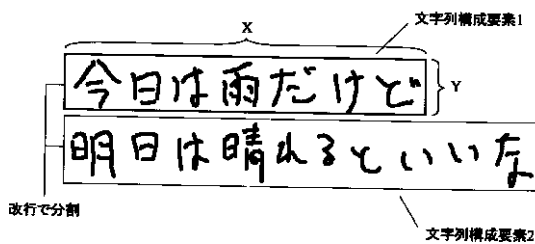 X
文字列構成要素1
今日は雨だけど
Y
明日は晴れるといいな
改行で分割
文字列構成要素2